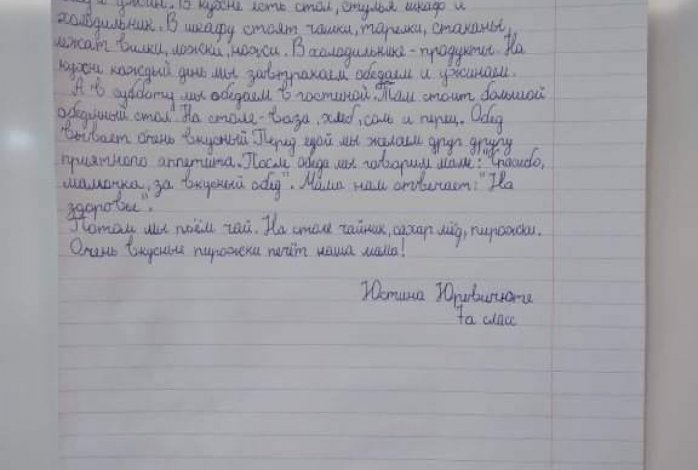 и ужин. В кухне есть стол, стулья шкаф и
холодильник. В шкафу стоят чашки, тарелки, стаканы,
лежат вилки, ложки, ножи. В холодильнике - продукты. На
кухне каждый день мы завтракаем обедаем и ужинаем.
А в субботу мы обедаем в гостиной. Там стоит большой
обеденный стол. На столе - ваза, хлеб, соль и перец. Обед
бывает очень вкусный. Перед едой мы желаем друг другу
приятного аппетита. После обеда мы говорим маме: "Спасибо,
мамочка, за вкусный обед". Мама нам отвечает: "На
здоровье".
Потом мы пьём чай. На столе чайник, сахар мёд, пирожки.
Очень вкусные пирожки печёт наша мама!
Юстина Юревичюте
7а класс